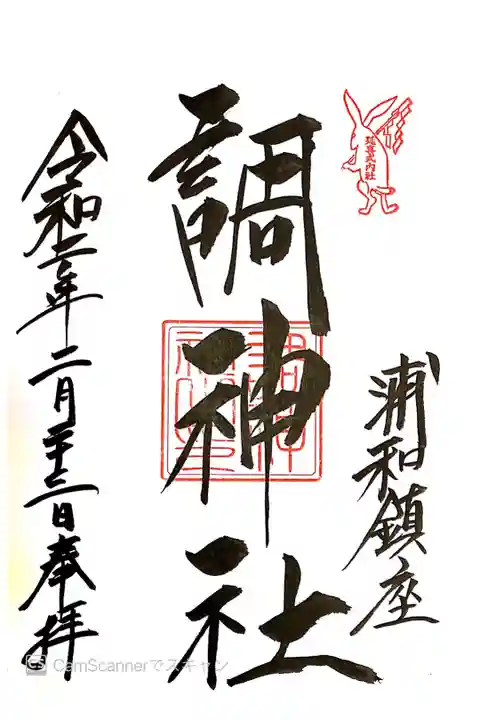 延喜式内社
浦和鎮座
調神社
令和二年二月二十二日奉拝
CamScannerでスキャン